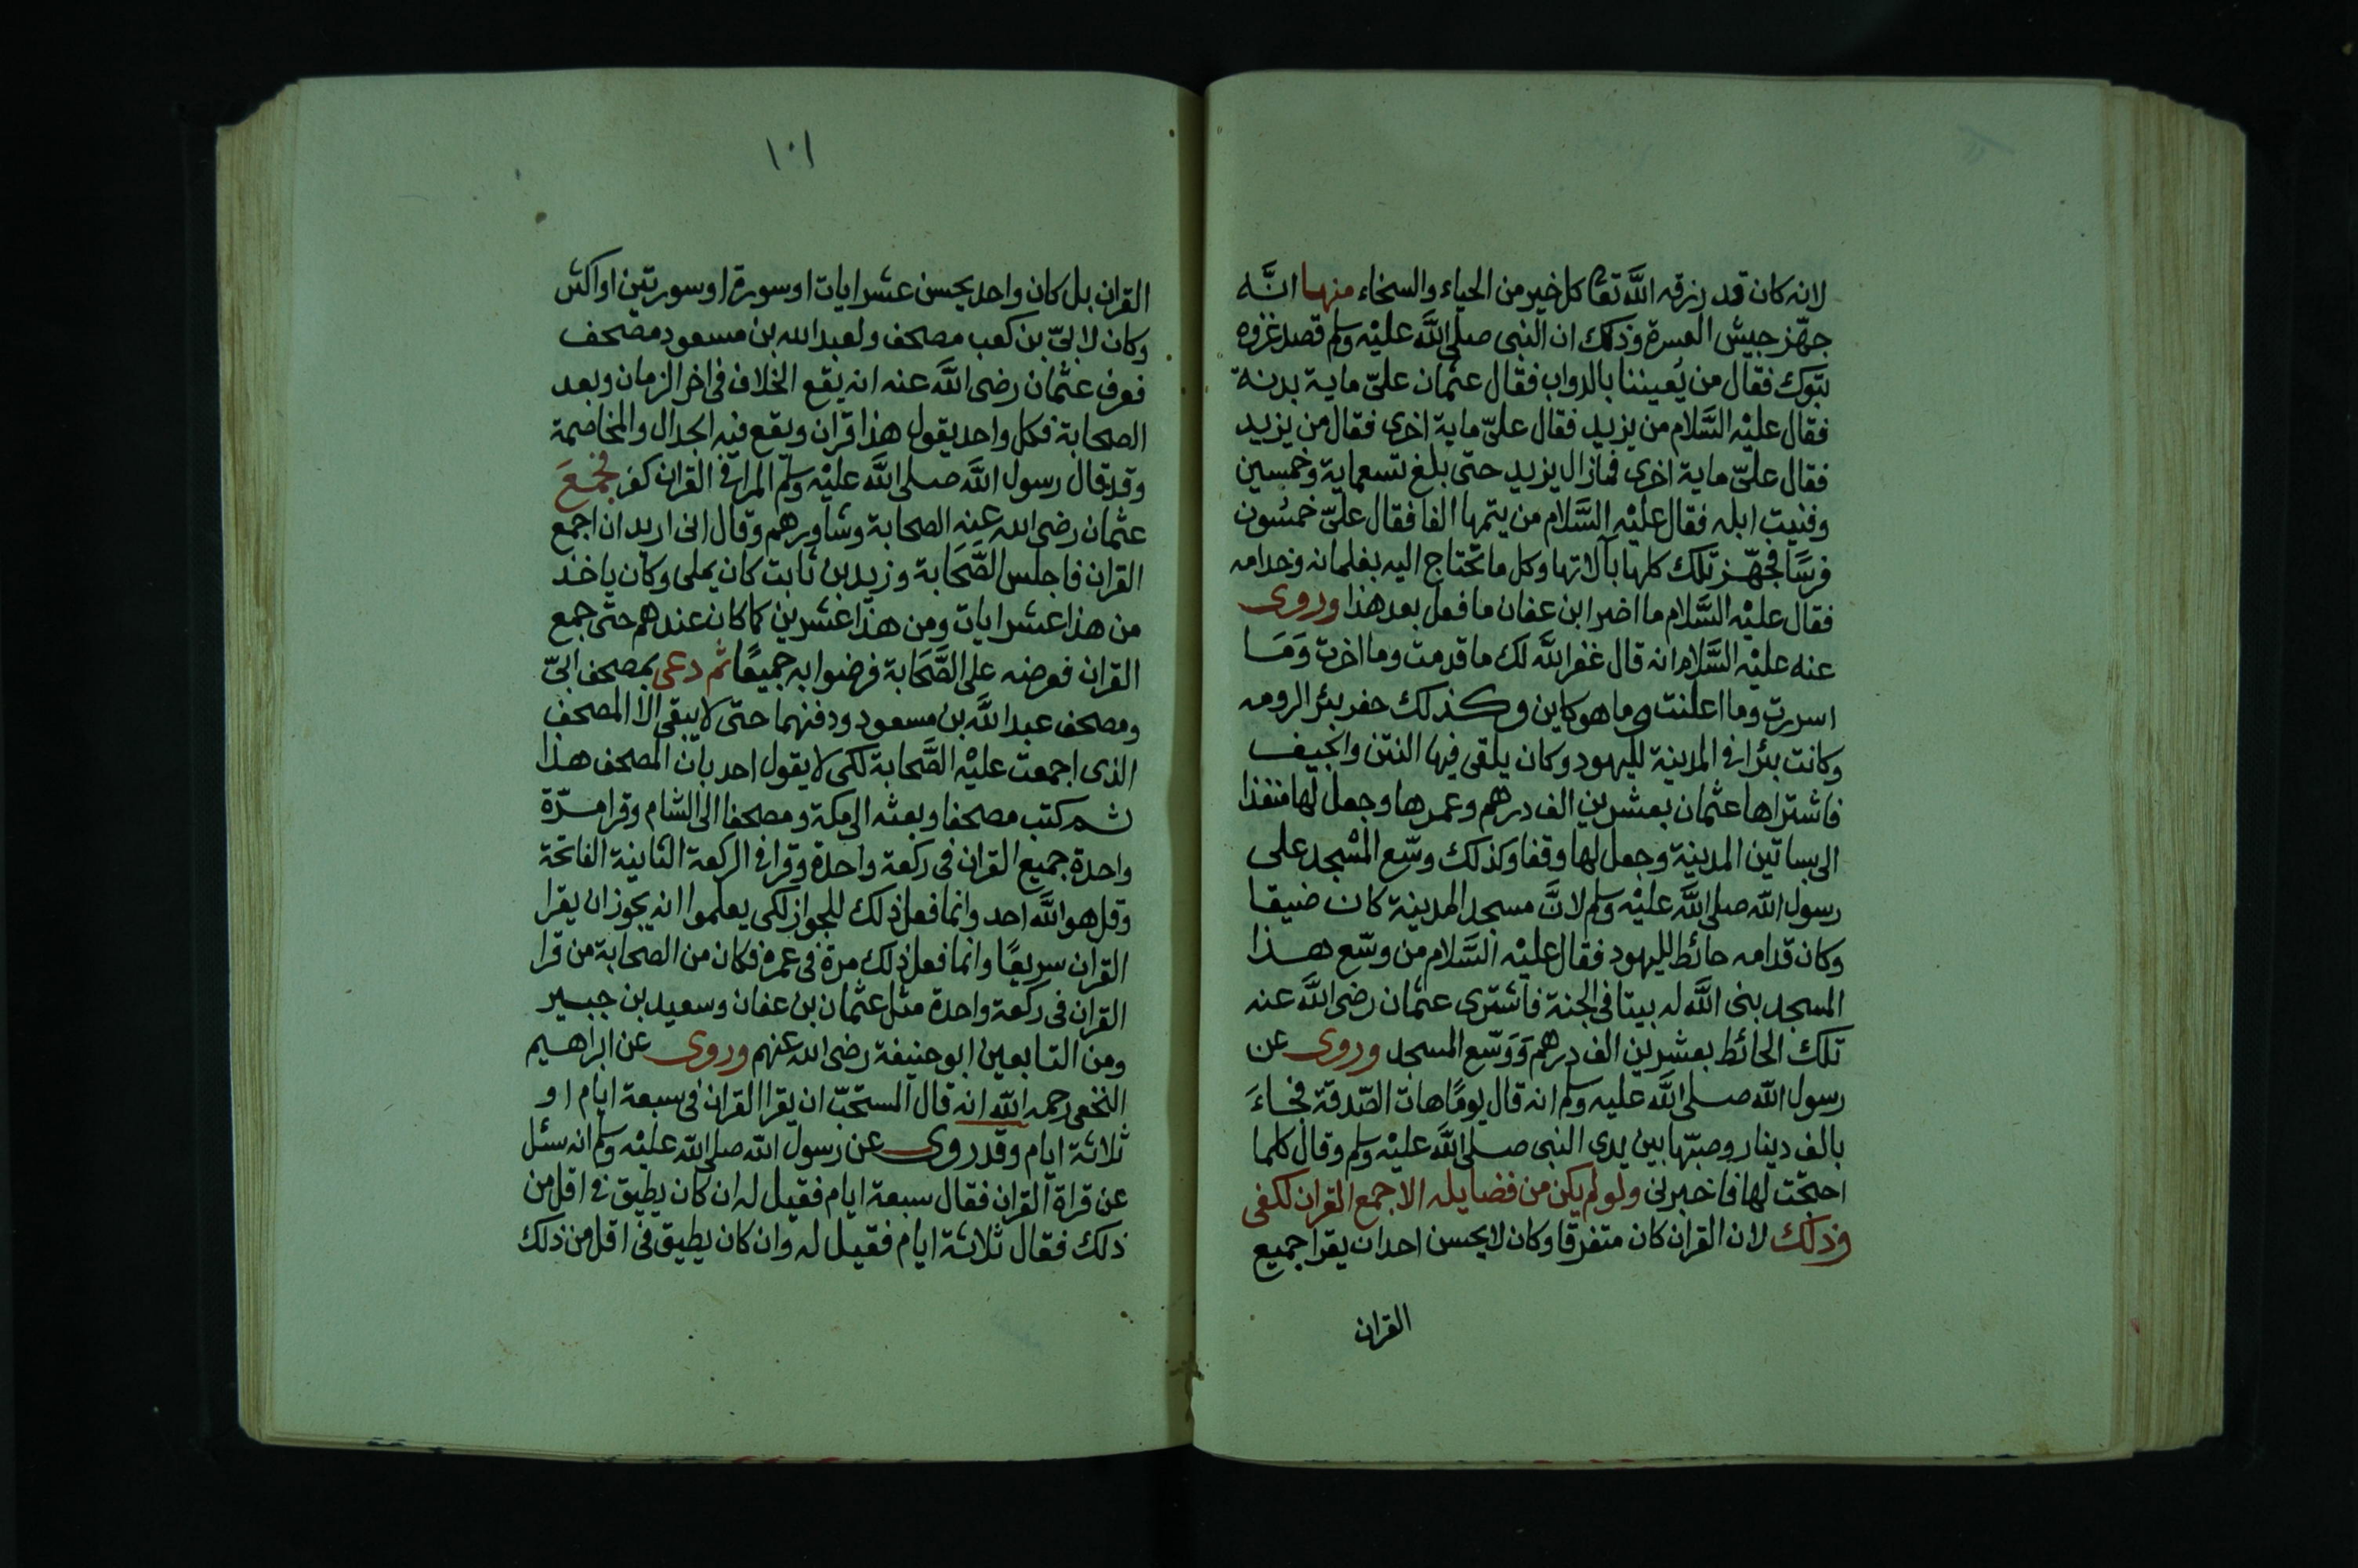 لانه كان قد رزقه الله تعا كل خير من الحياء والسخاء منها انَّه
جهّز جيش العسرة وذلك ان النبى صلى الله عليْه وسلم قصد غزوه
تبوك فقال من يُعيننا بالدواب فقال عثمان علىّ ماية بدنة
فقال عليْه السَّلام من يزيد فقال علىّ ماية اخرى فقال من يزيد
فقال علىّ ماية اخرى فمازال يزيد حتى بلغ تسعماية وخمسين
وفنيت ابله فقال عليْه السَّلام من يتمها الفا فقال علىّ خمسُون
فرسًا فجهّز تلك كلها بآلاتها وكل ما تحتاج اليه بغلمانه وخدامه
فقال عليْه السَّلام ما اضر ابن عفان ما فعل بعد هذا وروى
عنه عليْه السَّلام انه قال غفر الله لك ما قدمت وما اخرت وَمَا
اسررت وما اعلنت وما هو كاين وكذلك حفر بئر الرومه
وكانت بئرا فى المدينة لليهود وكان يلقى فيها النتن والجيف
فاشتراها عثمان بعشرين الف درهم وعمرها وجعل لها منفذا
الى بساتين المدينة وجعل لها وقفا وكذلك وسّع المسْجد على
رسول الله صلى الله عليْه وسلم لانَّ مسجد المدينة كان ضيقا
وكان قدامه حائط لليهود فقال عليْه السَّلام من وسّع هذا
المسجد بنى الله له بيتا فى الجنة فاشترى عثمان رضى الله عنه
تلك الحائط بعشرين الف درهم وَوَسّع المسجد وروى عن
رسول الله صلى الله عليه وسلم انه قال يومًا هات الصّدقة فجاءَ
بالف دينار وصبّها بين يدى النبى صلى الله عليْه وسلم وقال كلما
احتجت لها فاخبرنى ولو لم يكن من فضايله الا جمع القران لكفى
وذلك لان القران كان متفرقا وكان لا يحسن احد ان يقرا جميع
القران
١٠١
القران بل كان واحد يحسن عشر ايات او سورة او سورتين او اكثر
وكان لابىّ بن كعب مصحف ولعبد الله بن مسعود مصحف
فعرف عثمان رضى الله عنه انه يقع الخلاف فى اخر الزمان وبعد
الصحابة فكل واحد يقول هذا قران ويقع فيه الجدال والمخاصمة
وقد قال رسول الله صلى الله عليْه وسلم المرا فى القران كفر فجمعَ
عثمان رضى الله عنه الصحابة وشاورهم وقال انى اريد ان اجمع
القران فاجلس الصَّحَابة وزيد بن ثابت كان يملى وكان ياخذ
من هذا عشر ايات ومن هذا عشرين كما كان عندهم حتى جمع
القران فعرضه على الصَّحَابة فرضوا به جميعًا ثم دعى بمصحف ابىّ
ومصحف عبد الله بن مسعود ودفنهما حتى لا يبقى الا المصحف
الذى اجمعت عليْه الصَّحابة لكى لا يقول احد بان المصحف هذا
ثم كتب مصحفا وبعثه الى مكة ومصحفا الى الشام وقرا مرّة
واحدة جميع القران فى ركعة واحدة وقرا فى الركعة الثانية الفاتحة
وقل هو الله احد وانما فعل ذلك للجواز لكى يعلموا انه يجوز ان يقرا
القران سريعًا وانما فعل ذلك مرة فى عمره فكان من الصحابة من قرا
القران فى ركعة واحدة مثل عثمان بن عفان وسعيد بن جبير
ومن التابعين ابو حنيفة رضى الله عنهم وروى عن ابراهيم
النخعى رحمه الله انه قال المستحبّ ان يقرا القران فى سبعة ايام او
ثلاثة ايام وقد روى عن رسول الله صلى الله عليْه وسلم انه سئل
عن قراة القران فقال سبعة ايام فقيل له ان كان يطيق فى اقل من
ذلك فقال ثلاثة ايام فقيل له وان كان يطيق فى اقل من ذلك